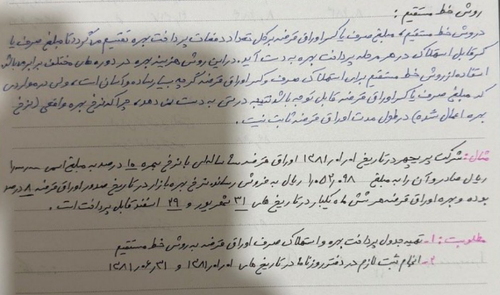 روش خط مستقیم :
در روش خط مستقیم، مبلغ صرف یا کسر اوراق قرضه بر کل تعداد دفعات پرداخت بهره تقسیم می گردد تا مبلغ صرف یا
کسر قابل استهلاک در هر مرحله پرداخت بهره به دست آید. در این روش هزینه بهره در دوره های مختلف برابر می باشد
استفاده از روش خط مستقیم برای استهلاک صرف و کسر اوراق قرضه گرچه بسیار ساده و آسان است، ولی در مواردی
که مبلغ صرف یا کسر اوراق قرضه قابل توجه باشد نتیجه درستی به دست نمی دهد، چرا که نرخ بهره واقعی (نرخ
بهره اعمال شده) در طول مدت اوراق قرضه ثابت نیست.
مثال: شرکت پریچهر در تاریخ ۱۳۸۱/۰۱/۰۱ اوراق قرضه ای با نرخ بهره ۱۰ درصد به مبلغ اسمی
ریال صادر و آن را به مبلغ ۱٫۰۵۲٫۰۹۸ ریال به فروش رساند. نرخ بهره بازار در تاریخ صدور اوراق قرضه ۸ درصد
بوده و بهره اوراق قرضه هر شش ماه یکبار در تاریخ های ۳۱ شهریور و ۲۹ اسفند قابل پرداخت است.
مطلوبست: ۱- تهیه جدول پرداخت بهره و استهلاک صرف اوراق قرضه به روش خط مستقیم
۲- انجام ثبت لازم در دفتر روزنامه در تاریخ های ۱۳۸۱/۰۱/۰۱ و ۱۳۸۱/۰۶/۳۱